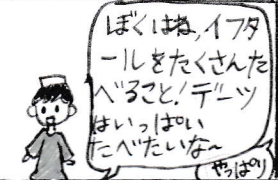 ぼくはね、イフタ
ールをたくさんた
べること！デーツ
はいっぱい
たべたいな～
やっぱり